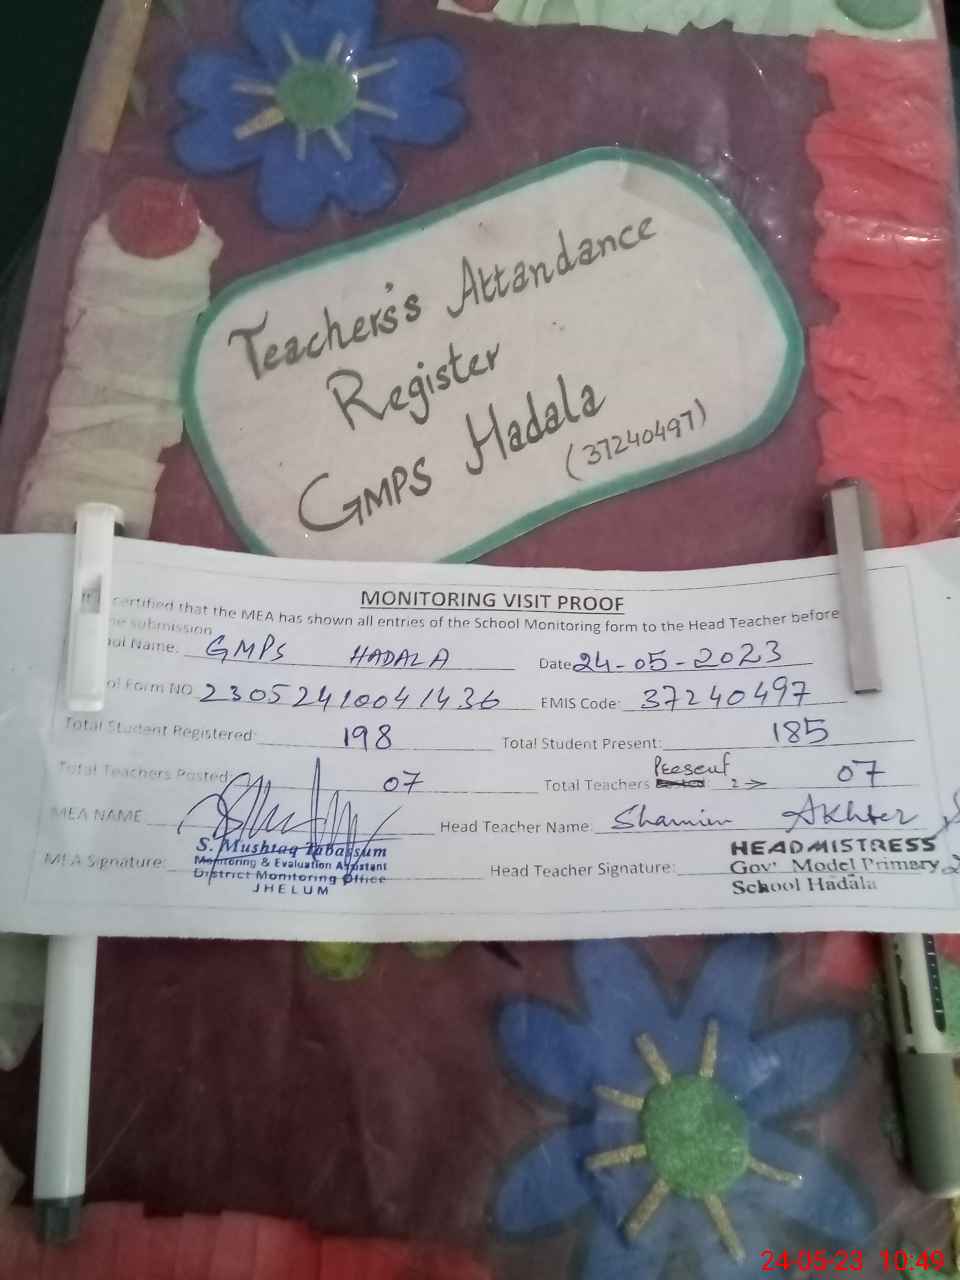 Teachers's Attandance
Register
GMPS Hadala
(37240497)
MONITORING VISIT PROOF
certified that the MEA has shown all entries of the School Monitoring form to the Head Teacher before
submission
Name: GMPS HADALA Date 24-05-2023
Form NO 2305241004 1436 EMIS Code: 37240497
Total Student Registered: 198 Total Student Present: 185
Total Teachers Posted: 07 Total Teachers Posted: Present 07
MEA NAME Head Teacher Name: Shamim Akhter
S. Mushtaq Tabassum
Monitoring & Evaluation Assistant
District Monitoring Office
JHELUM
MEA Signature: Head Teacher Signature:
HEADMISTRESS
Gov' Model Primary
School Hadala
24-05-23 10:49